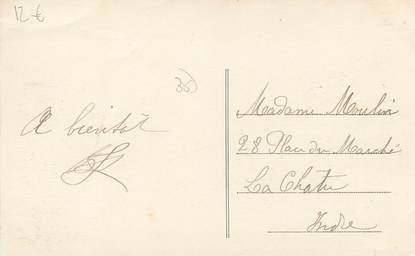 12 €
36
A bientôt
Madame Moulin
28 Place du Marché
La Chatre
Indre